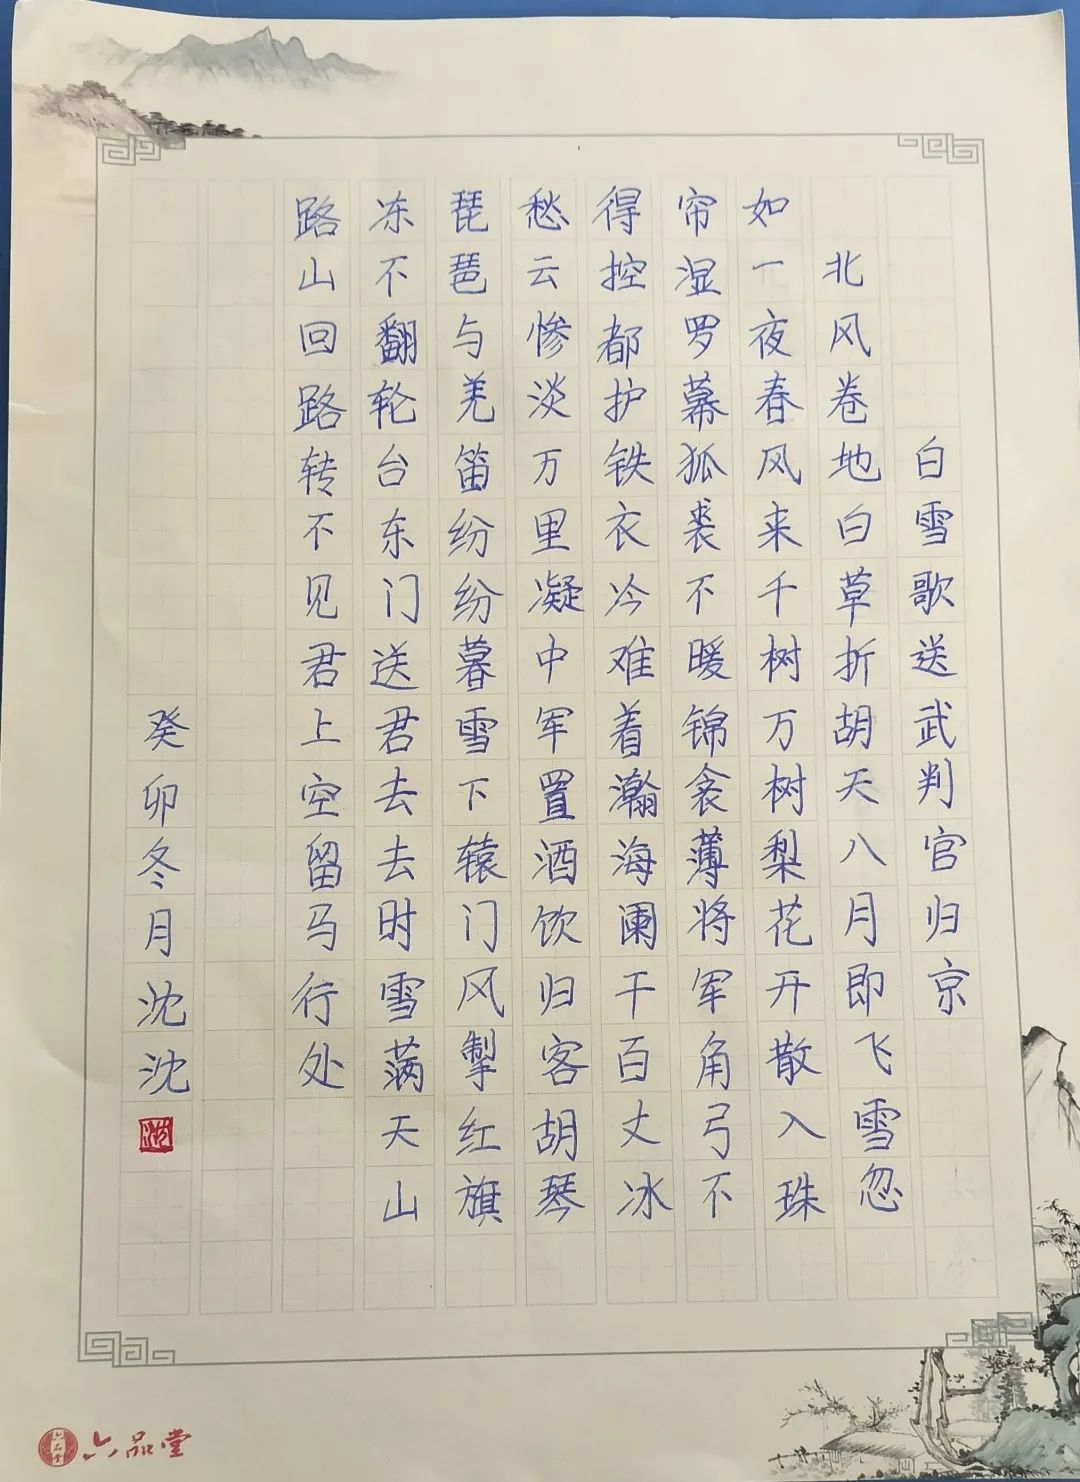 白雪歌送武判官归京
北风卷地白草折胡天八月即飞雪忽
如一夜春风来千树万树梨花开散入珠
帘湿罗幕狐裘不暖锦衾薄将军角弓不
得控都护铁衣冷难着瀚海阑干百丈冰
愁云惨淡万里凝中军置酒饮归客胡琴
琵琶与羌笛纷纷暮雪下辕门风掣红旗
冻不翻轮台东门送君去去时雪满天山
路山回路转不见君上空留马行处
癸卯冬月沈沈
六品堂